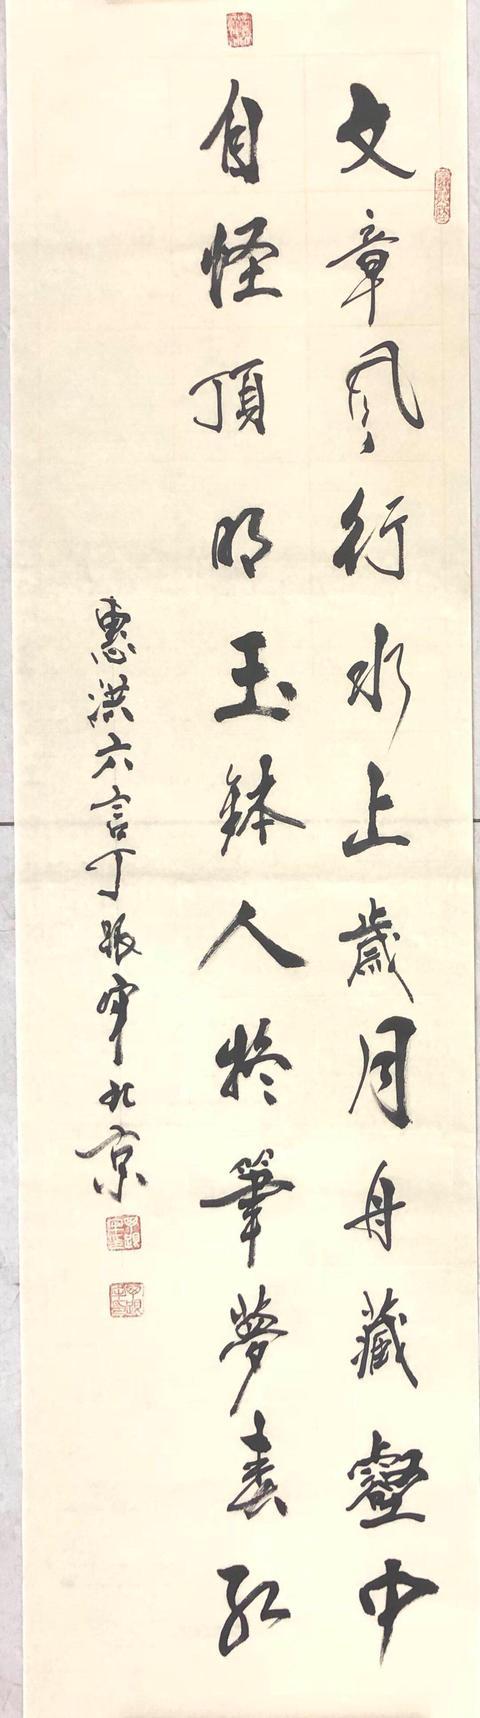 文章風行水上歲月舟藏壑中
自怪頂明玉鉢人於筆夢春紅
惠洪六言丁振宇北京